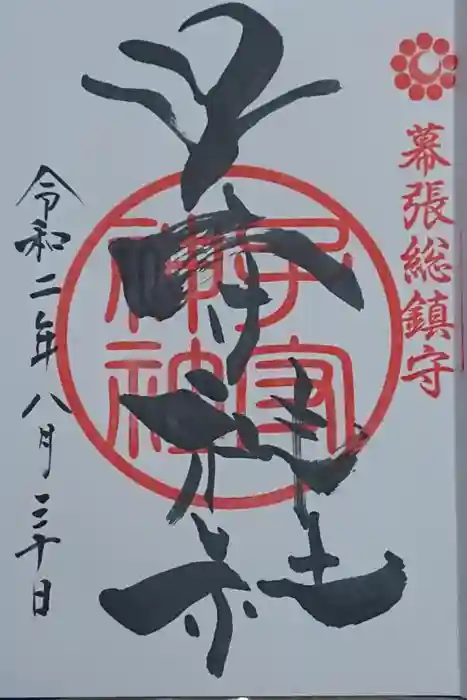 幕張総鎮守
子守神社
子守
神社
令和二年八月三十日